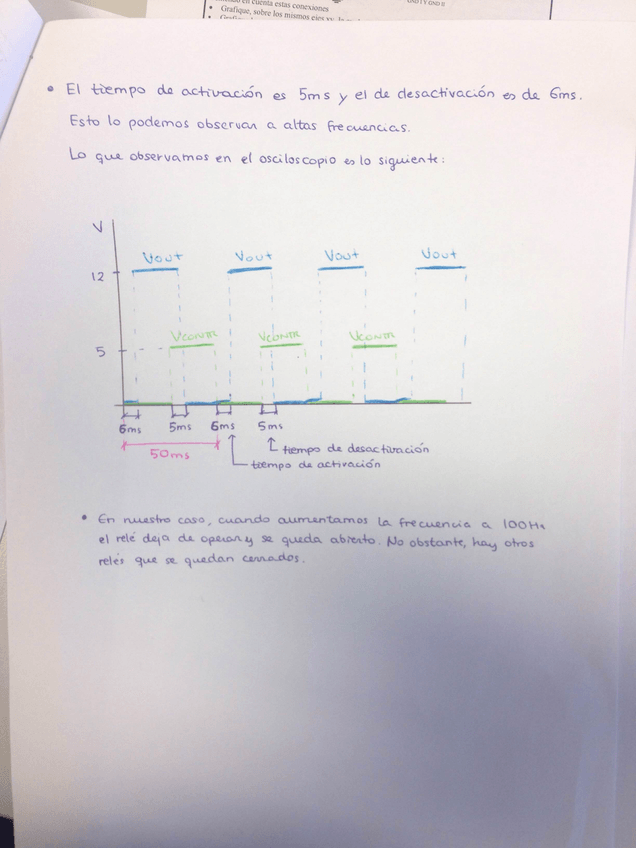 en cuenta estas conexiones
• Grafique, sobre los mismos ejes
• El tiempo de activación es 5ms y el de desactivación es de 6ms.
Esto lo podemos observar a altas frecuencias.
Lo que observamos en el osciloscopio es lo siguiente:
V
Vout Vout Vout Vout
12
Vcontr Vcontr Vcontr
5
6ms 5ms 6ms 5ms
50ms
tiempo de desactivación
tiempo de activación
• En nuestro caso, cuando aumentamos la frecuencia a 100Hz
el relé deja de operar y se queda abierto. No obstante, hay otros
relés que se quedan cerrados.